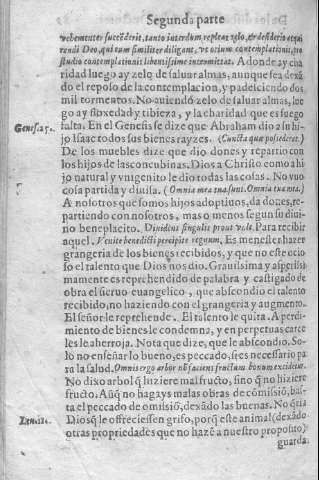 Segunda parte
vehementer succẽderit, tanto interdum, repletus zelo, & desiderio acqui
rendi Deo, qui eum similiter diligant, vt otium contemplationis, pro
studio contemplationis libentissime intermittat. A donde ay cha
ridad luego ay zelo de saluar almas, aunque sea dexã
do el reposo de la contemplacion, y padeiciendo dos
mil tormentos. No auiendo zelo de saluar almas, lue
go ay floxedad y tibieza, y la charidad que es fuego
Genes. 25. falta. En el Genesis se dize que Abraham dio a su hi-
jo Isaac todos sus bienes rayzes. (Cuncta quæ possederat.)
De los muebles dize que dio dones y repartio con
los hijos de las concubinas. Dios a Christo como a hi
jo natural y vnigenito le dio todas las cosas. No vuo
cosa partida y diuisa. (Omnia mea tua sunt. Omnia tua mea.)
A nosotros que somos hijos adoptiuos, da dones, re-
partiendo con nosotros, mas o menos segun su diui-
no beneplacito. Diuidens singulis prout vult. Para recibir
aquel. Venite benedicti percipite regnum, Es menester hazer
grangeria de los bienes recibidos, y que no este ocio
so el talento que Dios nos dio. Grauissima y asperissi
mamente es reprehendido de palabra y castigado de
obra el sieruo euangelico, que abscondio el talento
recibido, no haziendo con el grangeria y augmento.
El señor le reprehende. El talento le quita. A perdi-
miento de bienes le condemna, y en perpetuas carce
les le aherroja. Nota que dize, que le abscondio. So-
lo no enseñar lo bueno, es peccado, si es necessario pa
ra la salud. Omnis ergo arbor nõ faciens fructum bonum excidetur.
No dixo arbol q̃ hiziere mal fructo, sino q̃ no hiziere
fructo. Aũq̃ no hagays malas obras de comissiõ, bas-
ta el peccado de omissiõ, dexãdo las buenas. No q̃ria
Leuit. 11. Dios q̃ le offreciessen grifo, porq̃ este animal (dexãdo
otras propriedades que no hazẽ a nuestro proposito)
guarda